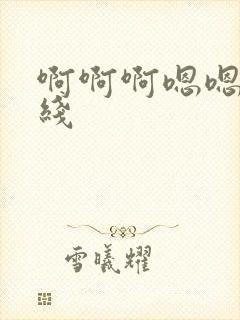 啊啊啊嗯嗯
綫
雪曦耀